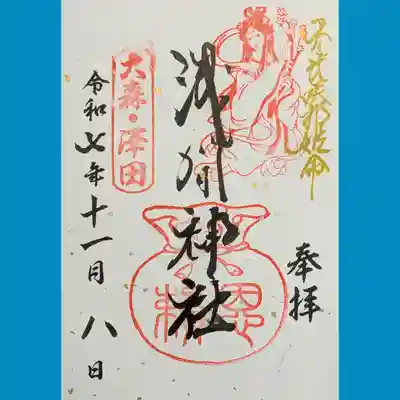 奉拝
浅間神社
大森・澤田
令和七年十一月八日